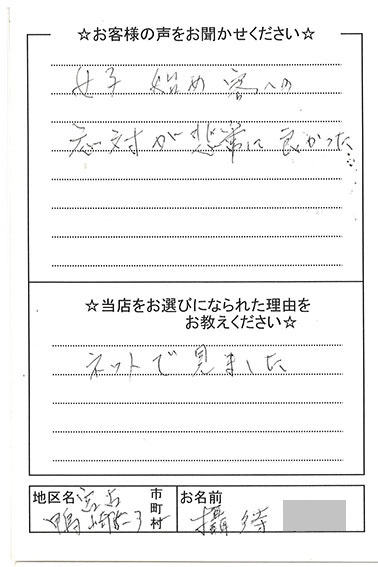 ☆お客様の声をお聞かせください☆
女子 始め 客への
応対が非常に良かった。
☆当店をお選びになられた理由を
お教えください☆
ネットで見ました
地区名
市
町
村
お名前